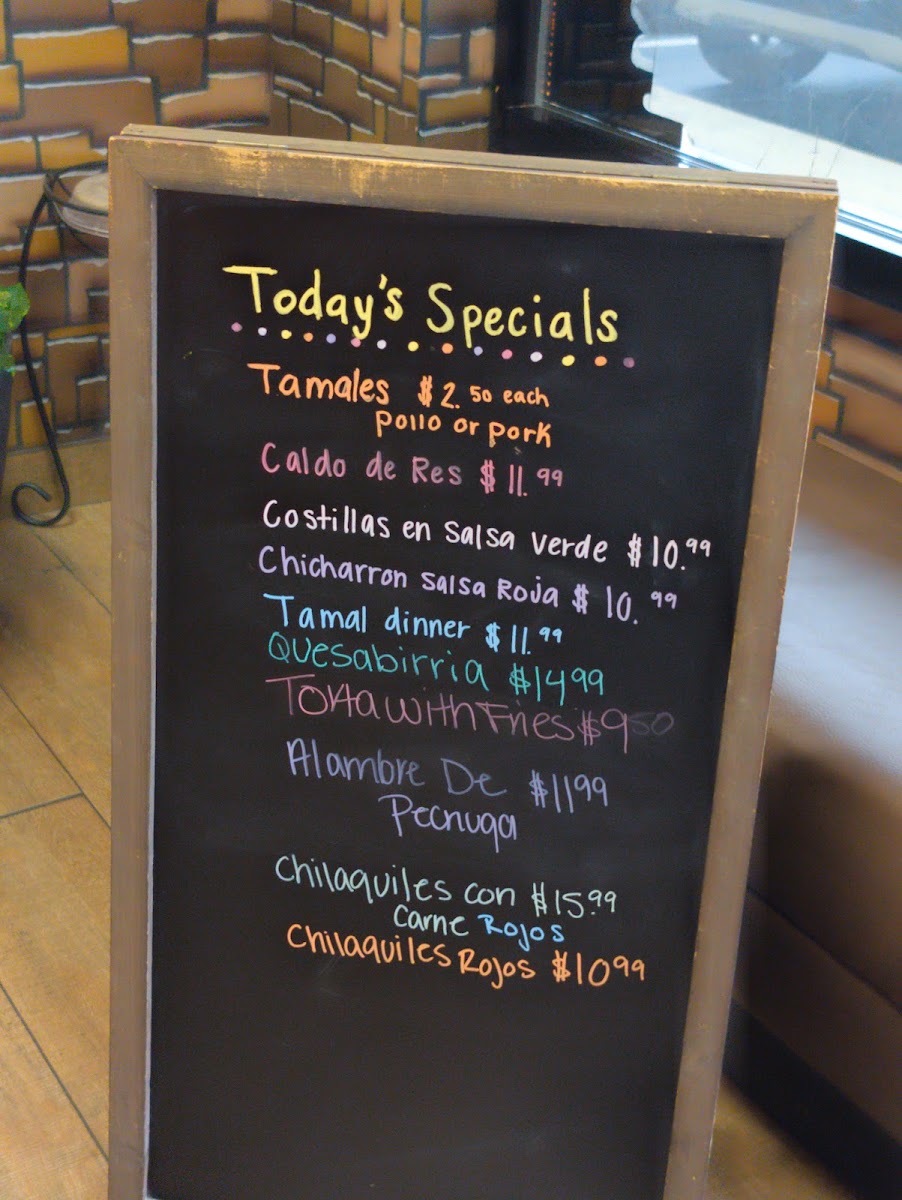 Today's Specials
Tamales $2.50 each
pollo or pork
Caldo de Res $11.99
Costillas en salsa verde $10.99
Chicharron salsa Roja $10.99
Tamal dinner $11.99
Quesabirria $14.99
Torta with Fries $9.50
Alambre De $11.99
Pecnuga
Chilaquiles con $15.99
Carne Rojos
Chilaquiles Rojos $10.99